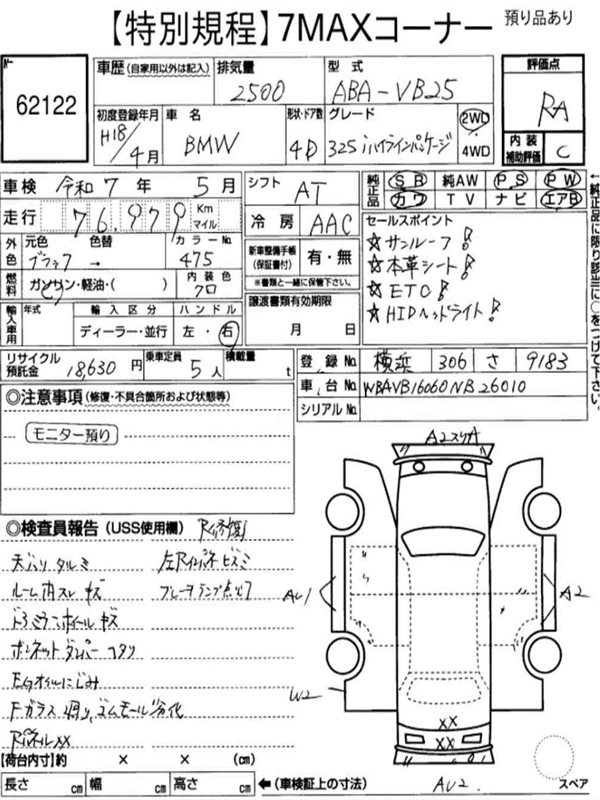 【特別規程】7MAXコーナー 預り品あり
62122
車歴(自家用以外は記入) 排気量 型式 評価点
2500 ABA-VB25 RA
初度登録年月 車名 形状・ドア数 グレード 2WD 内装補助評価
H18/4月 BMW 4D 325iハイラインパッケージ 4WD C
車検 令和7年 5月 シフト AT 純正品 SB 純AW PS PW
カワ TV ナビ エアB
走行 76,979 Km マイル 冷房 AAC
外色 元色 色替 カラーNo.
ブラック → 475
新車整備手帳(保証書付) 有・無
※書類と一緒に保管下さい。
燃料 ガソリン・軽油・( ) 内装色 クロ
譲渡書類有効期限
月 日
輸入車用 年式 輸入区分 ハンドル
ディーラー・並行 左・右
セールスポイント
☆サンルーフ!
☆本革シート!
☆ETC!
☆HIDヘッドライト!
←純正品に限り該当に○をつけて下さい。
リサイクル預託金 18,630円 乗車定員 5人 積載量 t
登録No. 横浜 306 さ 9183
車台No. WBAVB16060NB26010
シリアルNo.
◎注意事項(修復・不具合箇所および状態等)
モニター預り
◎検査員報告(USS使用欄) R修復
天バリタルミ
ルーム内スレ キズ
ドアミラーホイールキズ
ボンネットダンパー ヘタリ
Egオイルにじみ
Fガラス 飛り、ゴムモール劣化
RパネルXX
左Rインパネヒズミ
ブレーキランプ点灯
A2スリA
AU1
A2
W2
XX
XX
AU2
スペア
【荷台内寸】約 × × (cm)
長さ cm 幅 cm 高さ cm ←(車検証上の寸法)